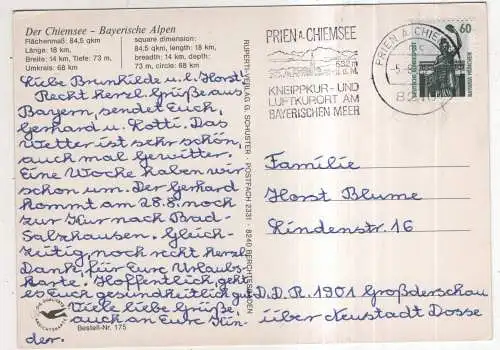 Der Chiemsee - Bayerische Alpen
Flächenmaß: 84,5 qkm
Länge: 18 km,
Breite: 14 km, Tiefe: 73 m,
Umkreis: 68 km
square dimension:
84,5 qkm, length: 18 km,
breadth: 14 km, depth:
73 m, circle: 68 km
Liebe Brunhilde u. l. Horst!
Recht herzl. Grüße aus
Bayern, sendet Euch,
Gerhard u. Lotti. Das
Wetter ist sehr schön,
auch mal Gewitter.
Eine Woche haben wir
schon um. Der Gerhard
kommt am 28.8. noch
zur Kur nach Bad-
Salzhausen. Gleich-
zeitig, noch recht herzl.
Dank, für Eure Urlaubs-
karte. Hoffentlich geht
es Euch gesundheitlich gut
Viele liebe Grüße
auch an Eure Kin-
der.
Bestell-Nr. 175
RUPERTI-VERLAG G. SCHUSTER · POSTFACH 2331 · 8240 BERCHTESGADEN
PRIEN A. CHIEMSEE
532 m
ü. M.
KNEIPPKUR- UND
LUFTKURORT AM
BAYERISCHEN MEER
PRIEN A. CHIEM
60
DEUTSCHE BUNDESPOST
BAVARIA MÜNCHEN
Familie
Horst Blume
Lindenstr. 16
D.D.R. 1901 Großderschau
über Neustadt Dosse